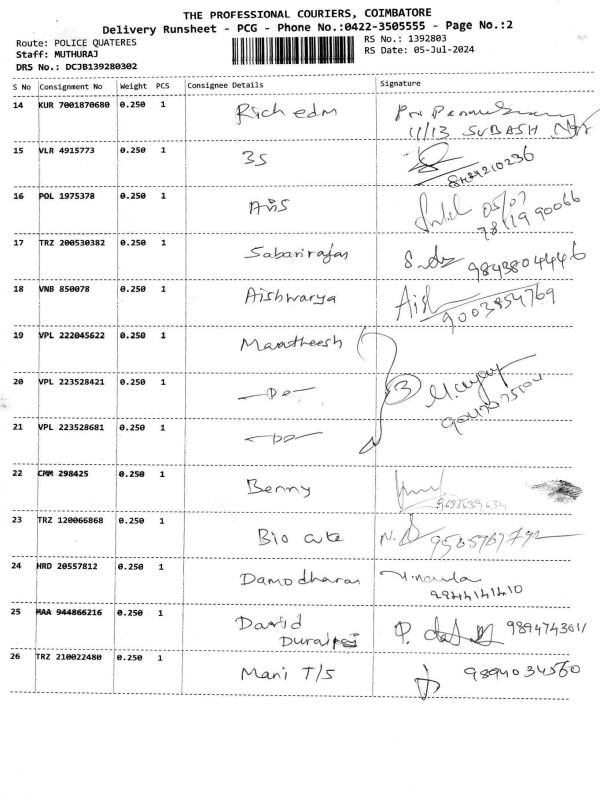 THE PROFESSIONAL COURIERS, COIMBATORE
Delivery Runsheet - PCG - Phone No.:0422-3505555 - Page No.:2
Route: POLICE QUATERES
RS No.: 1392803
Staff: MUTHURAJ
RS Date: 05-Jul-2024
DRS No.: DCJB139280302
S No Consignment No Weight PCS Consignee Details Signature
14 KUR 7001870680 0.250 1 Rich edm
11/13 SUBASH Ngr
15 VLR 4915773 0.250 1 3S
16 POL 1975378 0.250 1 05/07
78119 90066
17 TRZ 200530382 0.250 1 Sabarirajan 9843804446
18 VNB 850078 0.250 1 Aishwarya Aish
9003854769
19 VPL 222045622 0.250 1 Maratheesh
20 VPL 223528421 0.250 1 -Do- 3
21 VPL 223528681 0.250 1 -Do-
22 CMM 298425 0.250 1 Benny
23 TRZ 120066868 0.250 1 Bio cute
24 HRD 20557812 0.250 1 Damodharan
9944141410
25 MAA 944866216 0.250 1 David 9894743011
Durai
26 TRZ 210022480 0.250 1 Mani T/S 9894034560